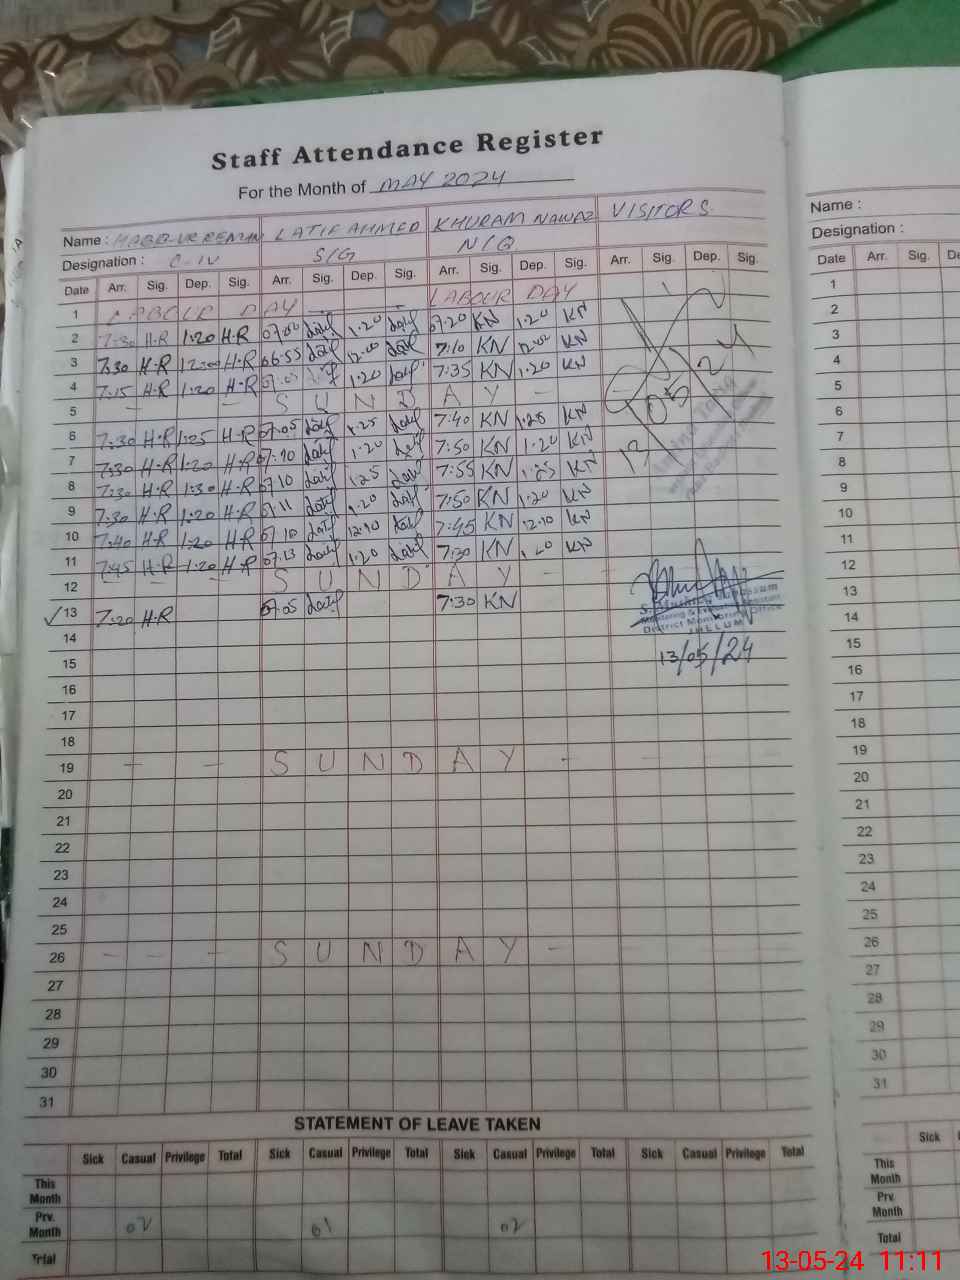 Staff Attendance Register
For the Month of MAY 2024
Name : LATIF AHMED KHURAM NAWAZ VISITORS.
Designation : C-IV S/G N/Q
Date Arr. Sig. Dep. Sig. Arr. Sig. Dep. Sig. Arr. Sig. Dep. Sig. Arr. Sig. Dep. Sig.
1 LABOUR DAY — — LABOUR DAY
2 7:30 H.R 1:20 H.R 07:00 Latif 1.20 Latif 07.20 KN 1.20 KN
3 7:30 H.R 12:00 H.R 06.55 Latif 12.00 Latif 7:10 KN 12.00 KN
4 7:15 H.R 1:20 H.R Latif 1.20 Latif 7:35 KN 1.20 KN
5 - - S U N D A Y -
6 7:30 H.R 1:25 H.R 07.05 Latif 1.25 Latif 7:40 KN 1.25 KN
7 7:30 H.R 1:20 H.R 07.10 Latif 1.20 Latif 7:50 KN 1.20 KN
8 7:30 H.R 1:30 H.R 07.10 Latif 1.25 Latif 7:55 KN 1.25 KN
9 7:30 H.R 1:20 H.R 07.11 Latif 1.20 Latif 7:50 KN 1.20 KN
10 7:40 H.R 1:20 H.R 07.10 Latif 12.10 Latif 7:45 KN 12.10 KN
11 7:45 H.R 1.20 H.R 07.13 Latif 1.20 Latif 7:30 KN 1.20 KN
12 - - - S U N D A Y - -
13 7:20 H.R 07.05 Latif 7:30 KN
13 05 24
District Monitoring Office
JHELUM
13/05/24
14
15
16
17
18
19 - - S U N D A Y - -
20
21
22
23
24
25
26 - - - S U N D A Y -
27
28
29
30
31
STATEMENT OF LEAVE TAKEN
Sick Casual Privilege Total Sick Casual Privilege Total Sick Casual Privilege Total Sick Casual Privilege Total
This Month
Prv. Month 02 01 02
Total
Name :
Designation :
Date Arr. Sig. De
1
2
3
4
5
6
7
8
9
10
11
12
13
14
15
16
17
18
19
20
21
22
23
24
25
26
27
28
29
30
31
Sick
This Month
Prv. Month
Total
13-05-24 11:11